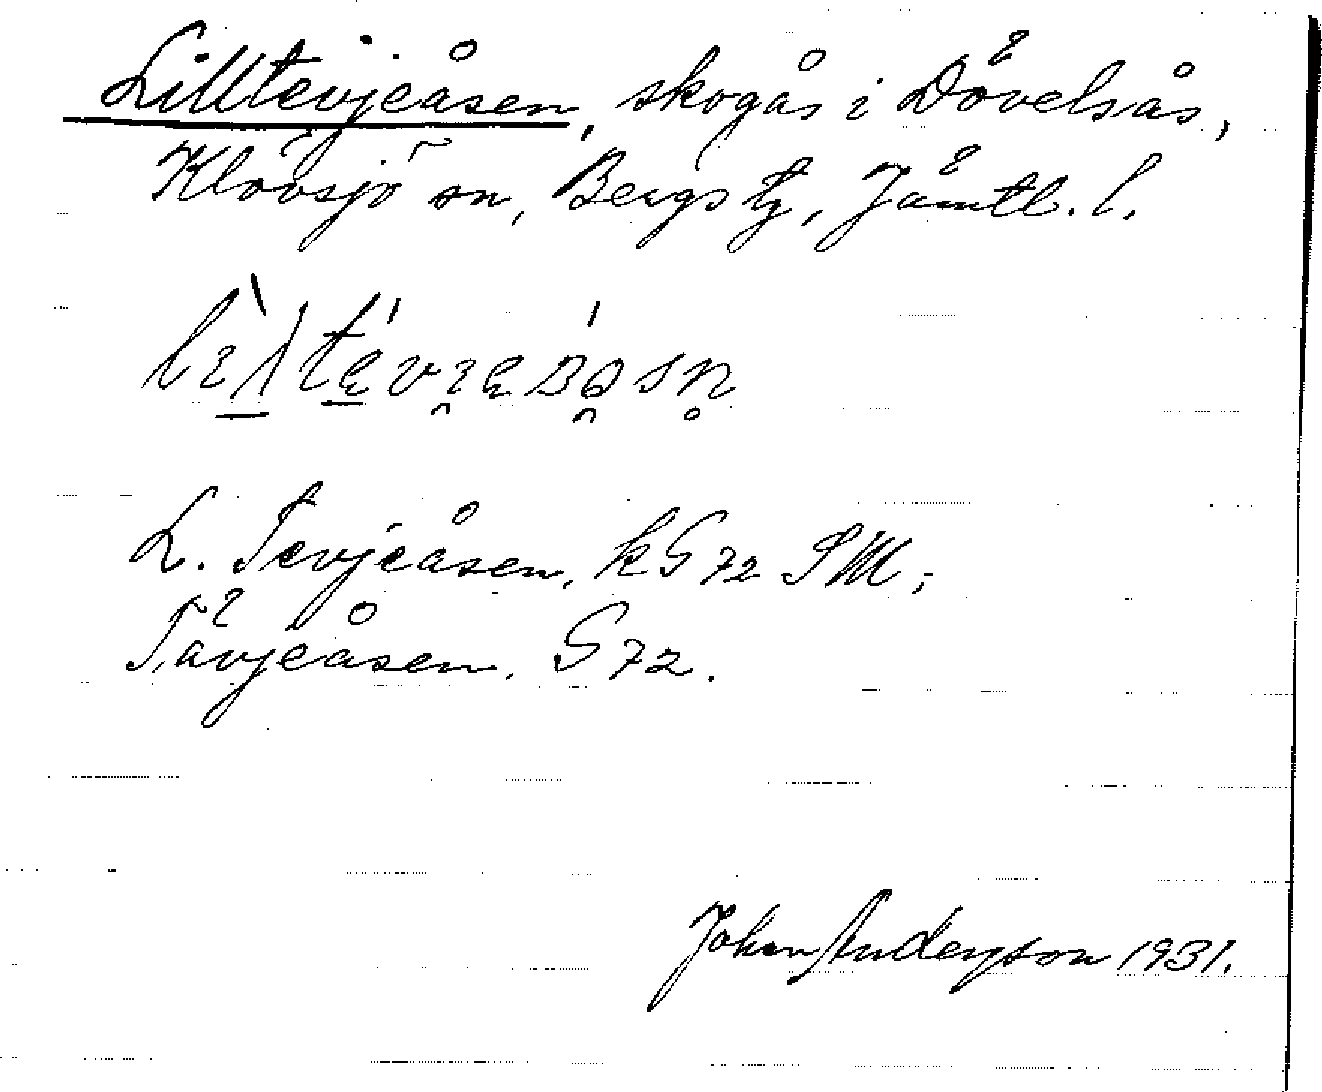 Lilltevjeåsen, skogås i Dövelsås,
Klövsjö sn, Bergs tg, Jämtl. l.
L. Tevjeåsen, kG 72 SM;
Tävjeåsen. G 72.
Johan Anderson 1931.